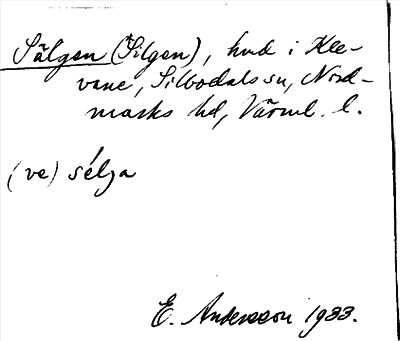 Sälgen (Silgen), hmd i Kle-
vane, Silbodals sn, Nord-
marks hd, Värml. l.
(ve) sélja
E. Andersson 1933.